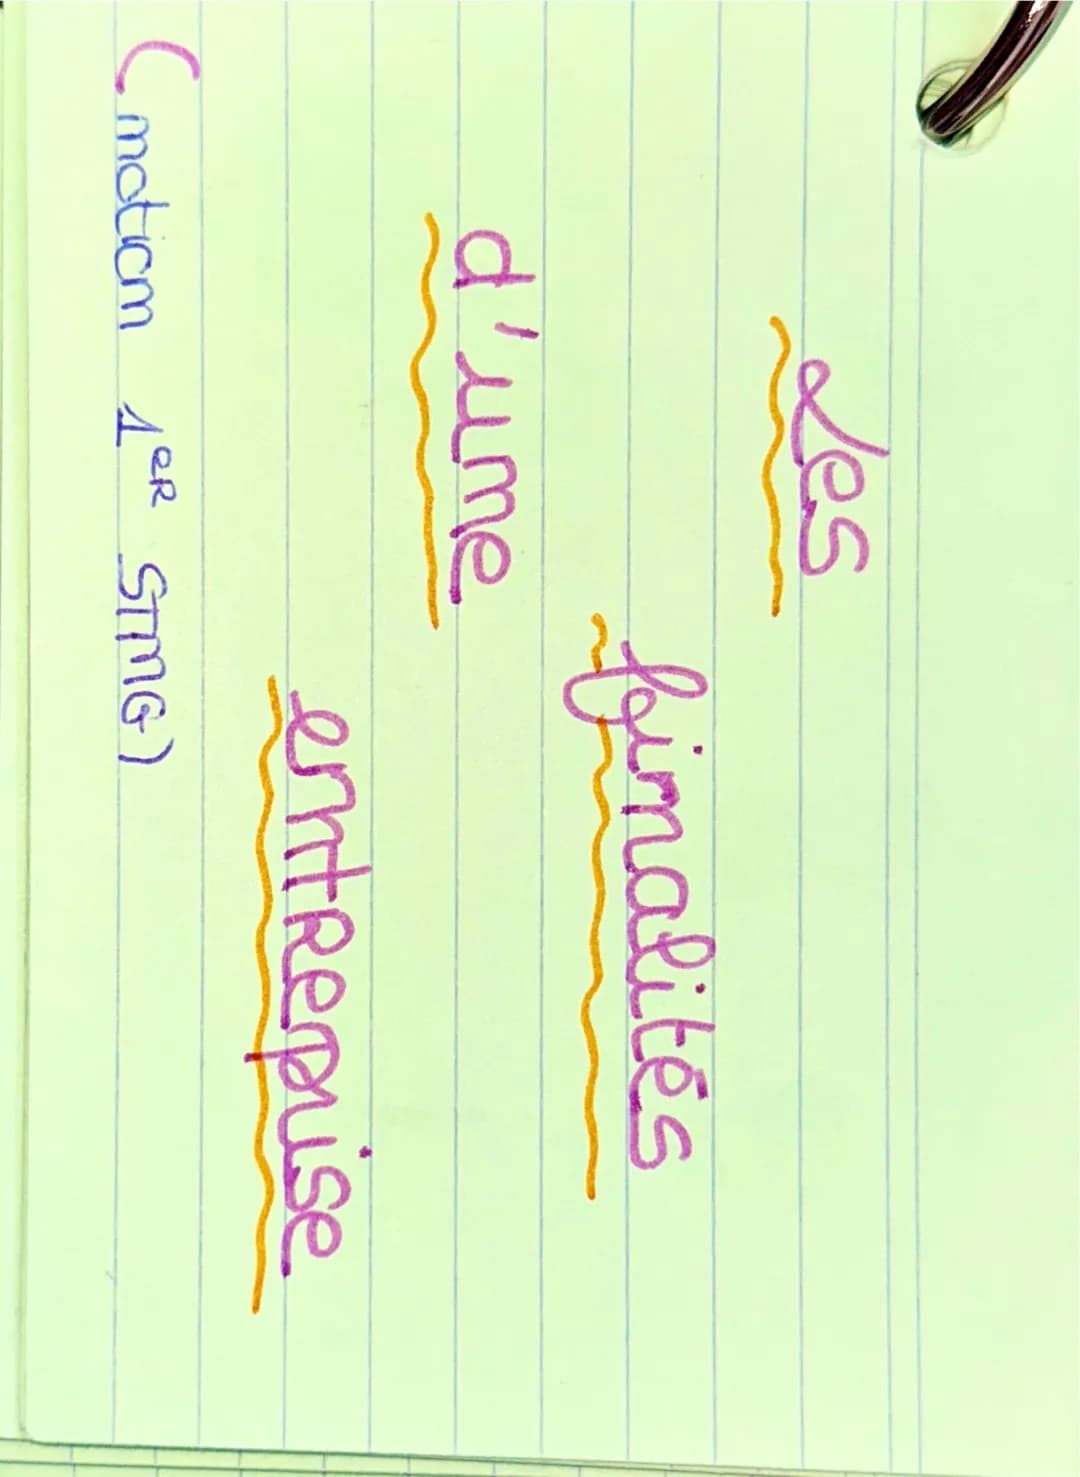 Les
finalités
d'une
entreprise
(notion 1er STMG)